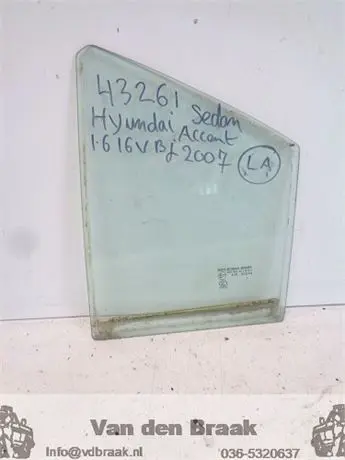 43261 Sedan
Hyundai Accent
1.6 16V Bj 2007
LA
Van den Braak
Info@vdbraak.nl 036-5320637